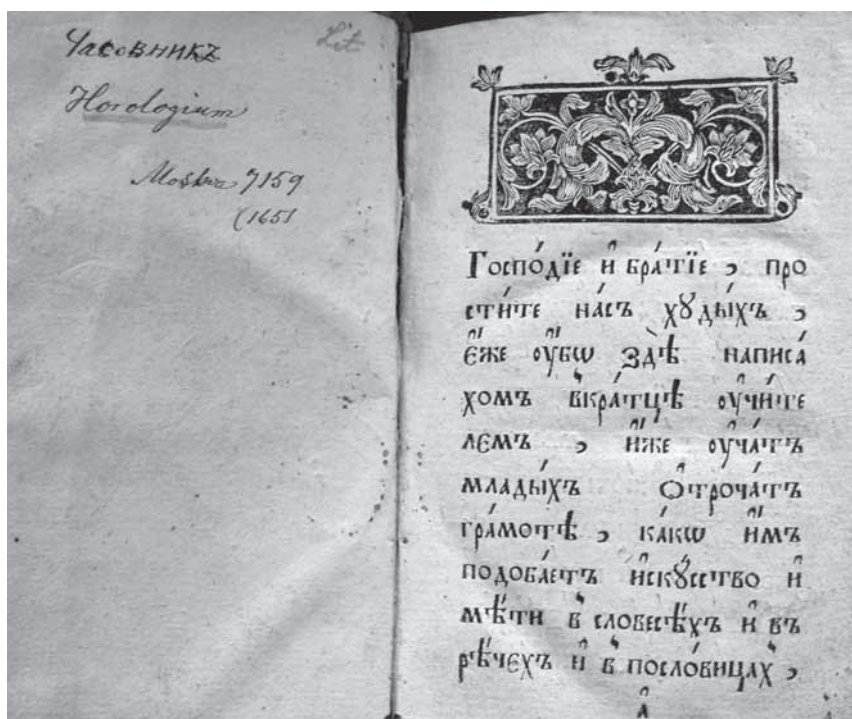 Часовникъ
Lit
Horologium
Moskva 7159
(1651
Госпо́дїе и҆ бра́тїе , про
сти́те на́съ хꙋды́хъ ,
є҆́же ᲂу҆́бѡ здѣ̀ написа́
хомъ вкра́тцѣ ᲂу҆чи́те
лемъ , и҆́же ᲂу҆ча́тъ
млады́хъ ѻ҆троча́тъ
гра́мотѣ , ка́кѡ и҆̀мъ
подоба́етъ и҆скꙋ́сство и҆
мѣ́ти в словесѣ́хъ и҆ въ
рѣ́чехъ и҆ в посло́вицахъ ,
а҆